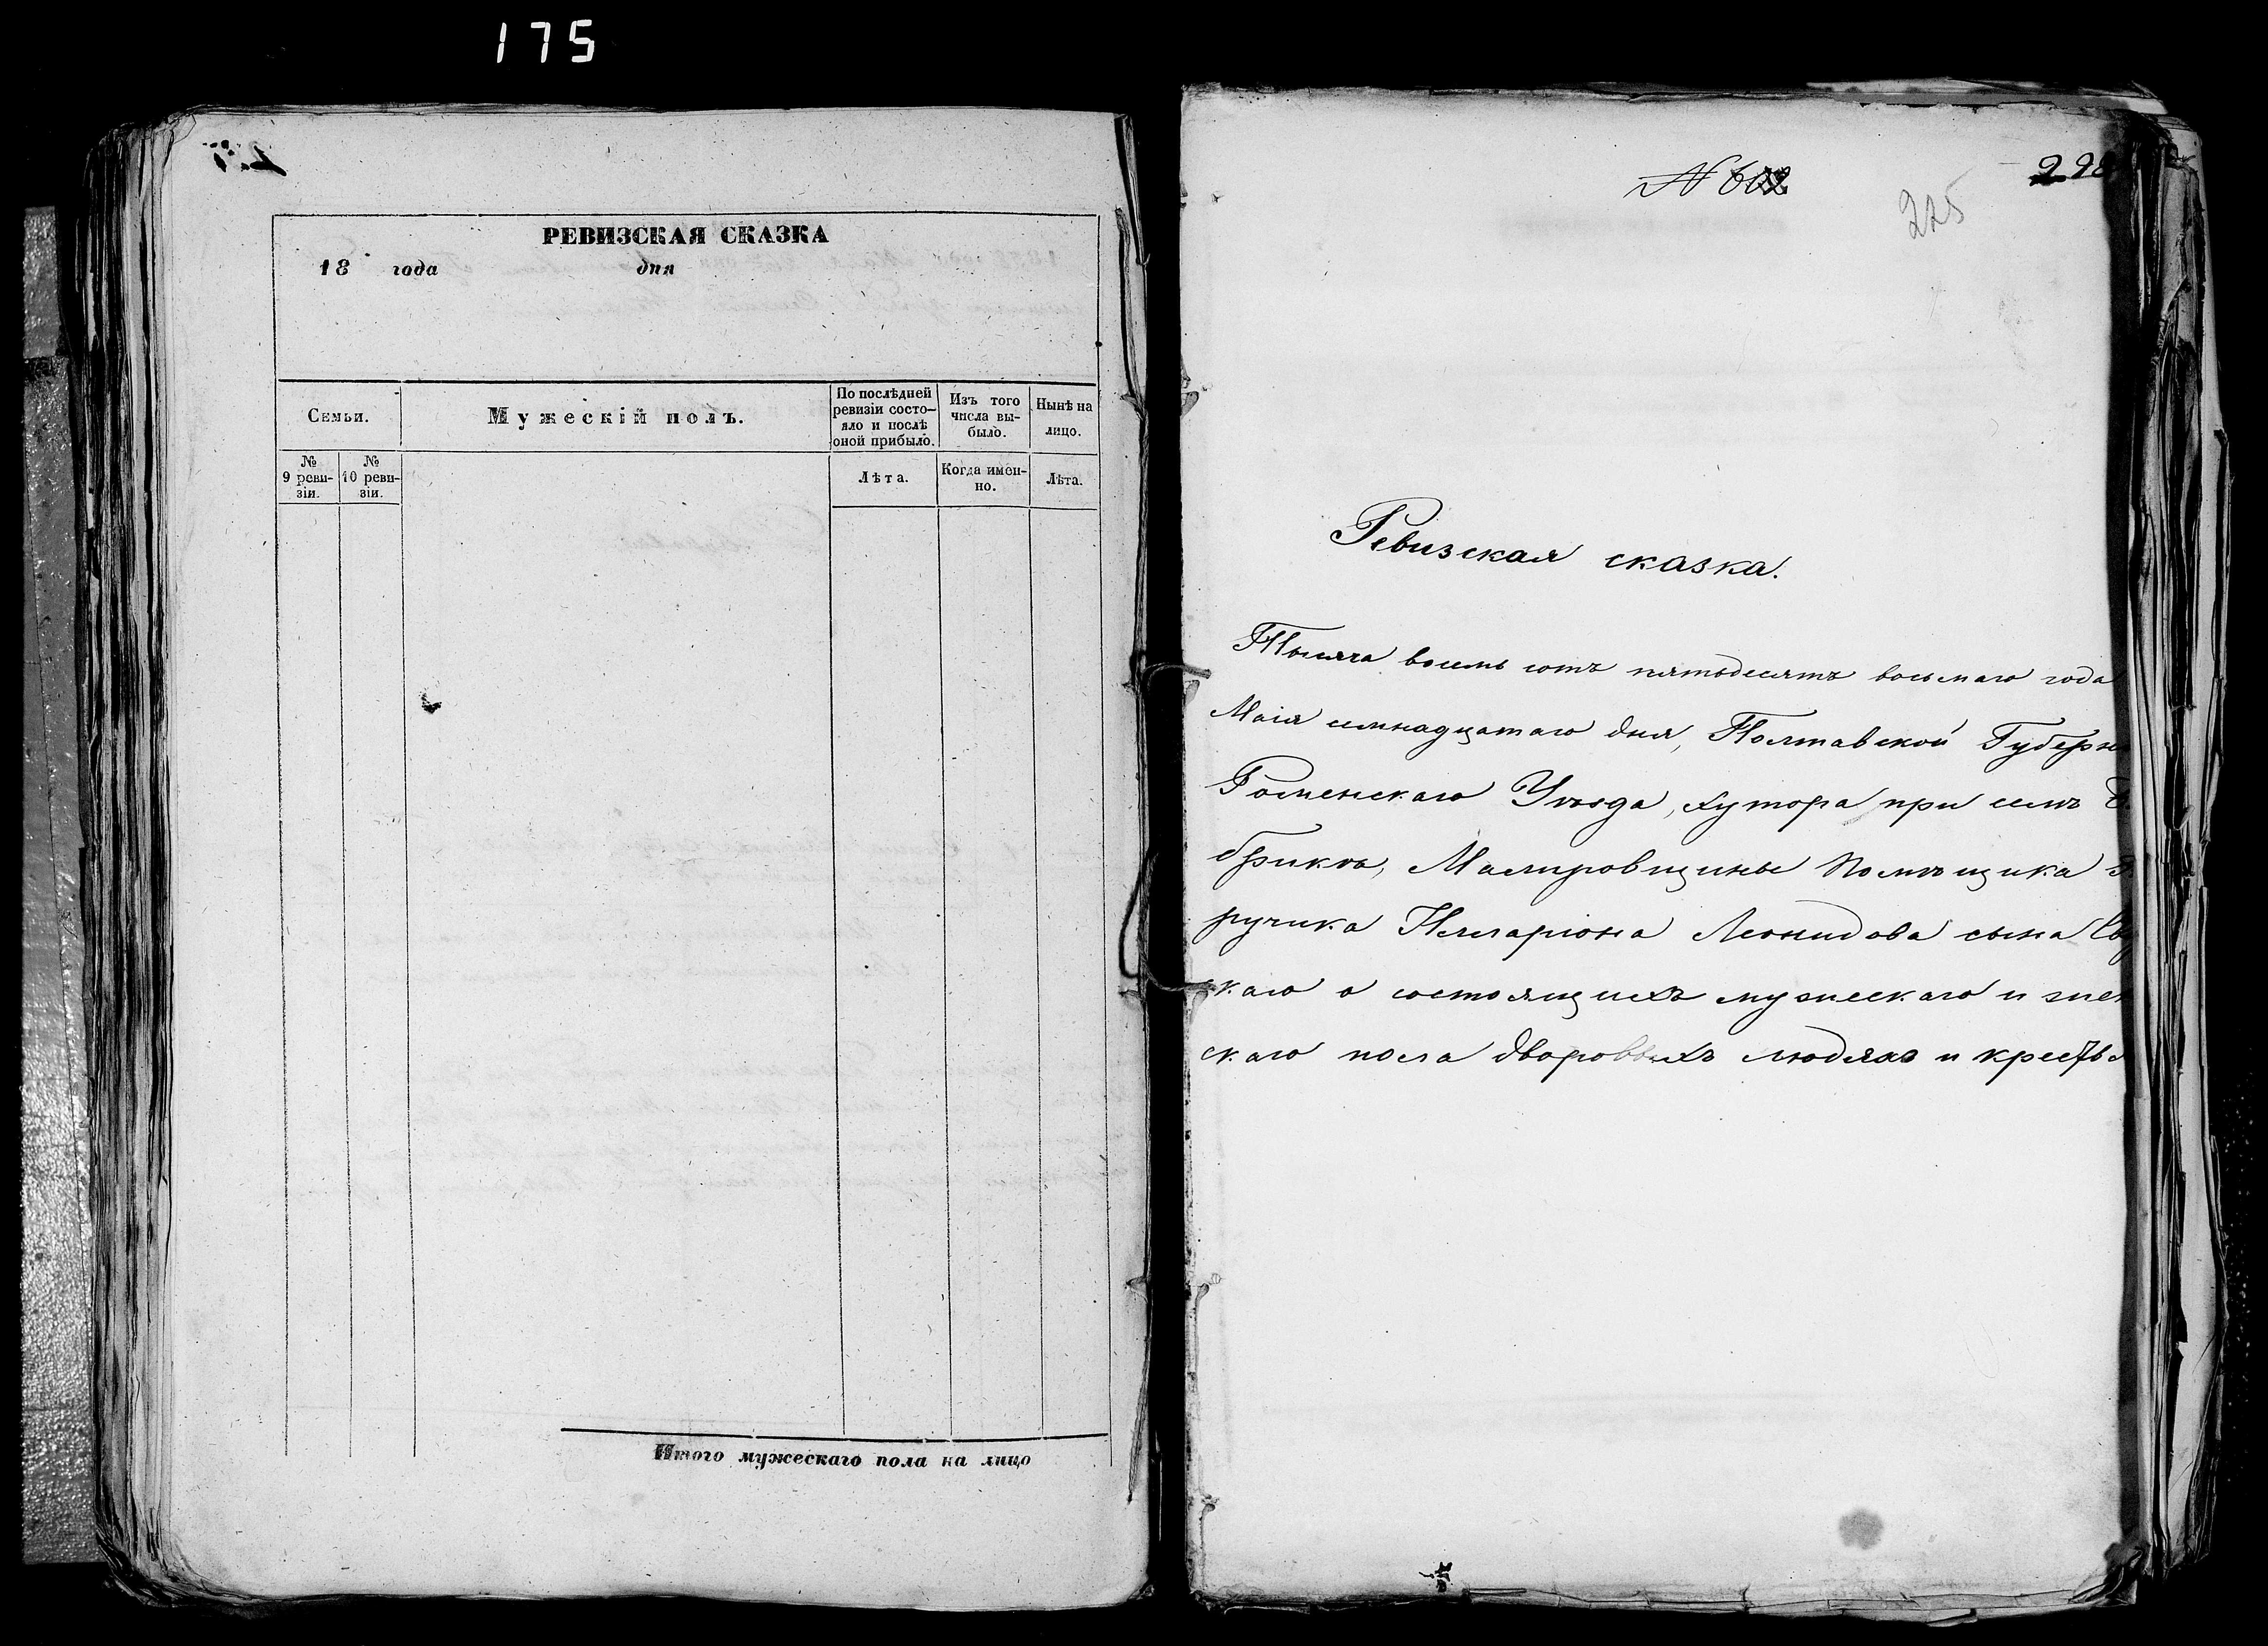 175
РЕВИЗСКАЯ СКАЗКА
18 года дня
Семьи.
Мужескій полъ.
По послѣдней
ревизіи состо-
яло и послѣ
оной прибыло.
Изъ того
числа вы-
было.
Нынѣ на
лицо.
№
9 реви-
зіи.
№
10 реви-
зіи.
Лѣта.
Когда имен-
но.
Лѣта.
Итого мужескаго пола на лицо
225
Ревизская сказка.
Тысяча восемь сотъ пятьдесятъ восьмаго года
Маія семнадцатаго дня, Полтавской Губерн
Роменскаго Уѣзда, хутора при селѣ
брикѣ, Помѣщика
ручика Илларіона Леонидова сына
каго о состоящихъ мужескаго и жен
скаго пола дворовыхъ людяхъ и крестья